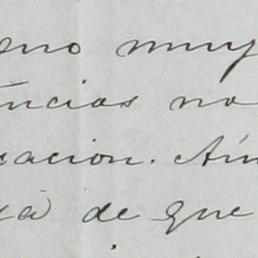 no muy
ncias no
cacion. Aún
ya de que